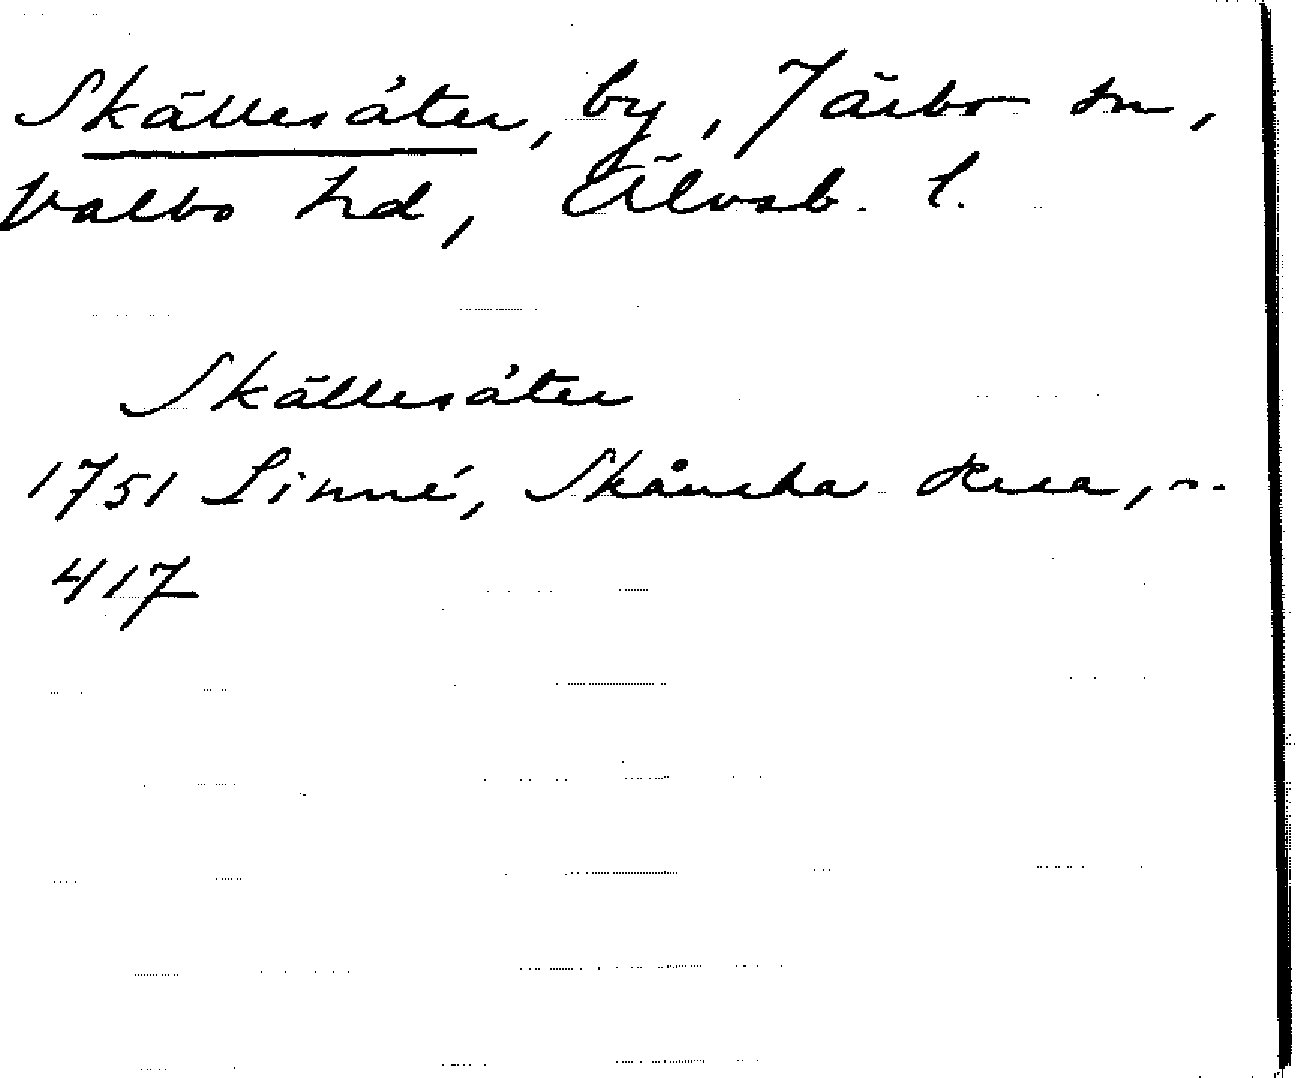 Skällesäter, by, Järbo sn,
Valbo hd, Älvsb. l.
Skällesäter
1751 Linné, Skånska Resa, s.
417